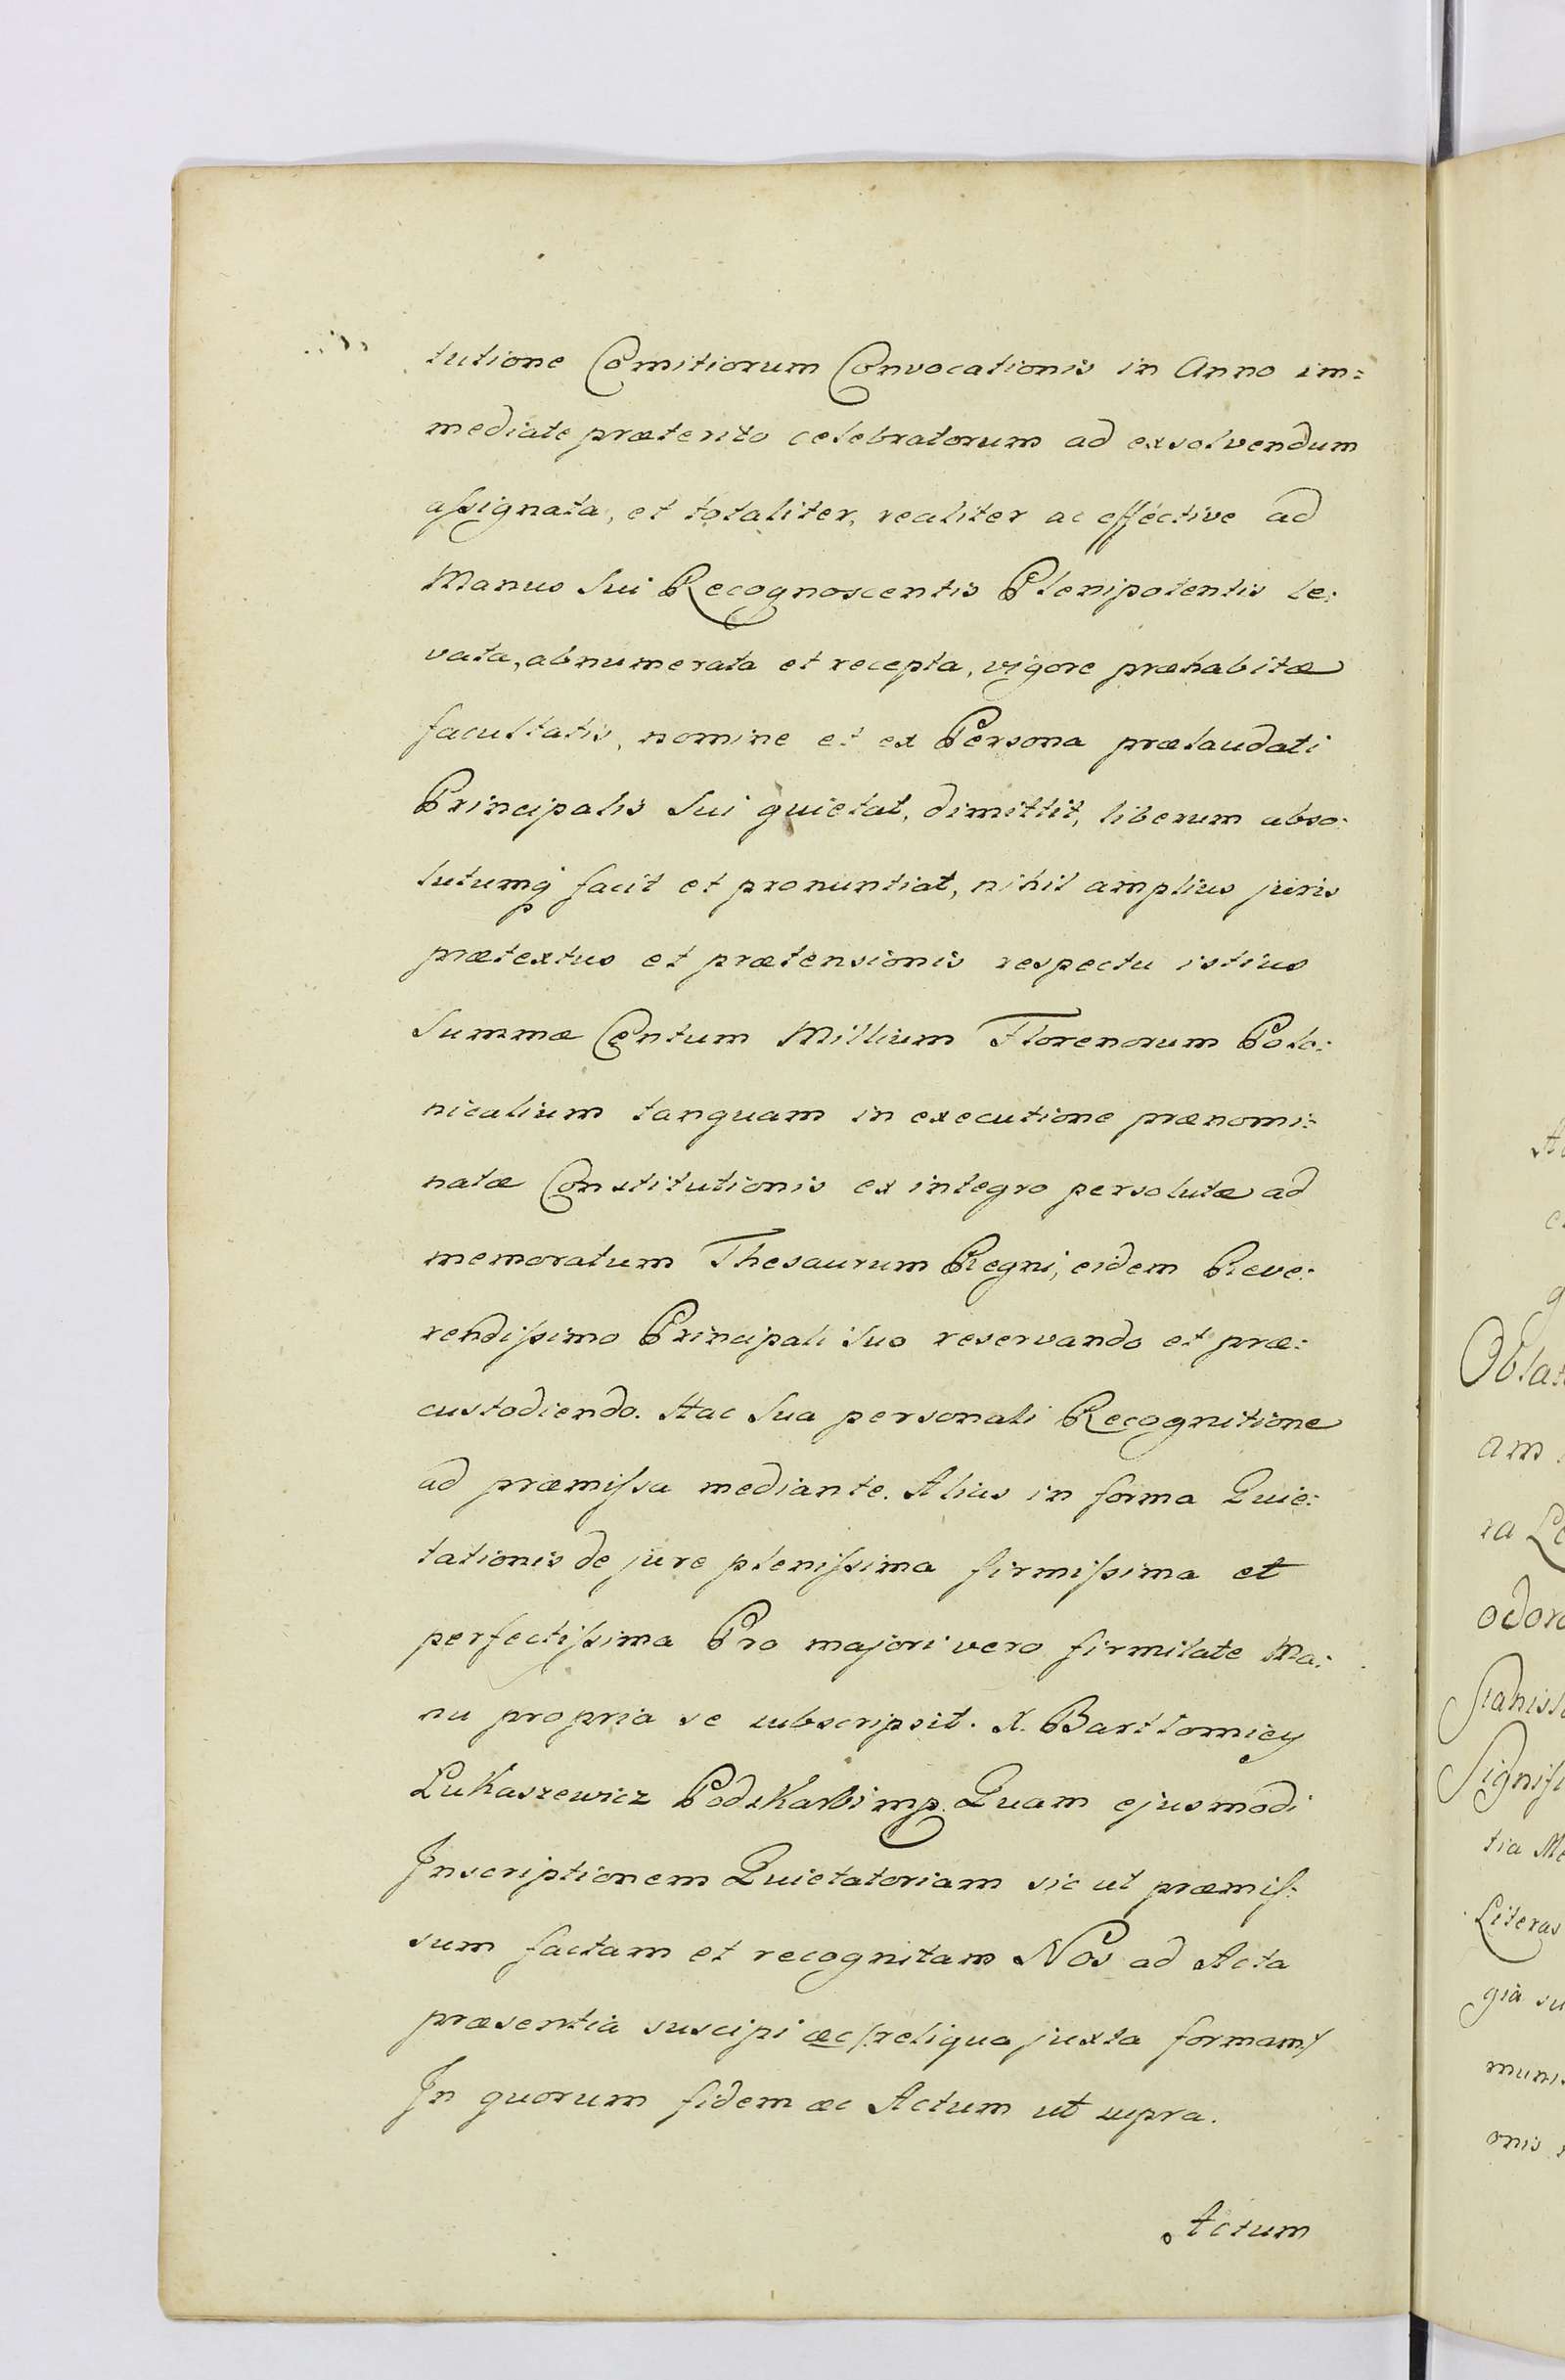 tutione Comitiorum Convocationis in Anno im=
mediate præterito celebratorum ad exsolvendum
aſsignata, et totaliter, realiter ac efféctive ad
Manus Sui Recognoscentis Plenipotentis le:
vata, abnumerata et recepta, vigore præhabitæ
facultatis, nomine et ex Persona prælaudati
Principalis Sui quietat, dimittit, liberum abso:
lutumq facit et pronuntiat, nihil amplius juris
prætextus et prætensionis respectu istius
Summæ Centum Millium Florenorum Polo:
nicalium tanquam in executione prænomi:
natæ Constitutionis ex integro persolutæ ad
memoratum Thesaurum Regni, eidem Reve:
rendiſsimo Principali Suo reservando et præ:
custodiendo. Hac Sua personali Recognitione
ad præmiſsa mediante. Alias in forma Quie:
tationis de jure pleniſsima firmiſsima et
perfectiſsima Pro majori vero firmitate Ma:
nu propria se subscripsit. X. Bartłomiey
Łukaszewicz Podskarbi mp. Quam ejusmodi
Inscriptionem Quietatoriam sic ut præmiſ:
sum factam et recognitam Nos ad Acta
præsentia suscipi æc /:reliqua juxta formam:/
In quorum fidem æc Actum ut supra.
Actum
Oblat
am
ra
odor
Signifi
tia Me
Literas
gia su
muni
onis